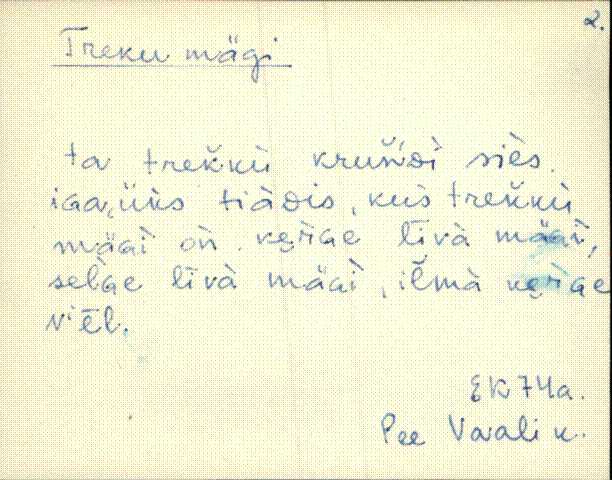 2.
Treku mägi
ta trek̆kù krun̆dì siès.
iGa,üks tiàDis, kus trek̆kù
mäGì òǹ. keŗ̀Ge līvà mäGì,
sel̀Ge līvà mäGì, il̆mà keŗ̀Ge
vⁱēl.
EK 74a.
Pee Vaali k.